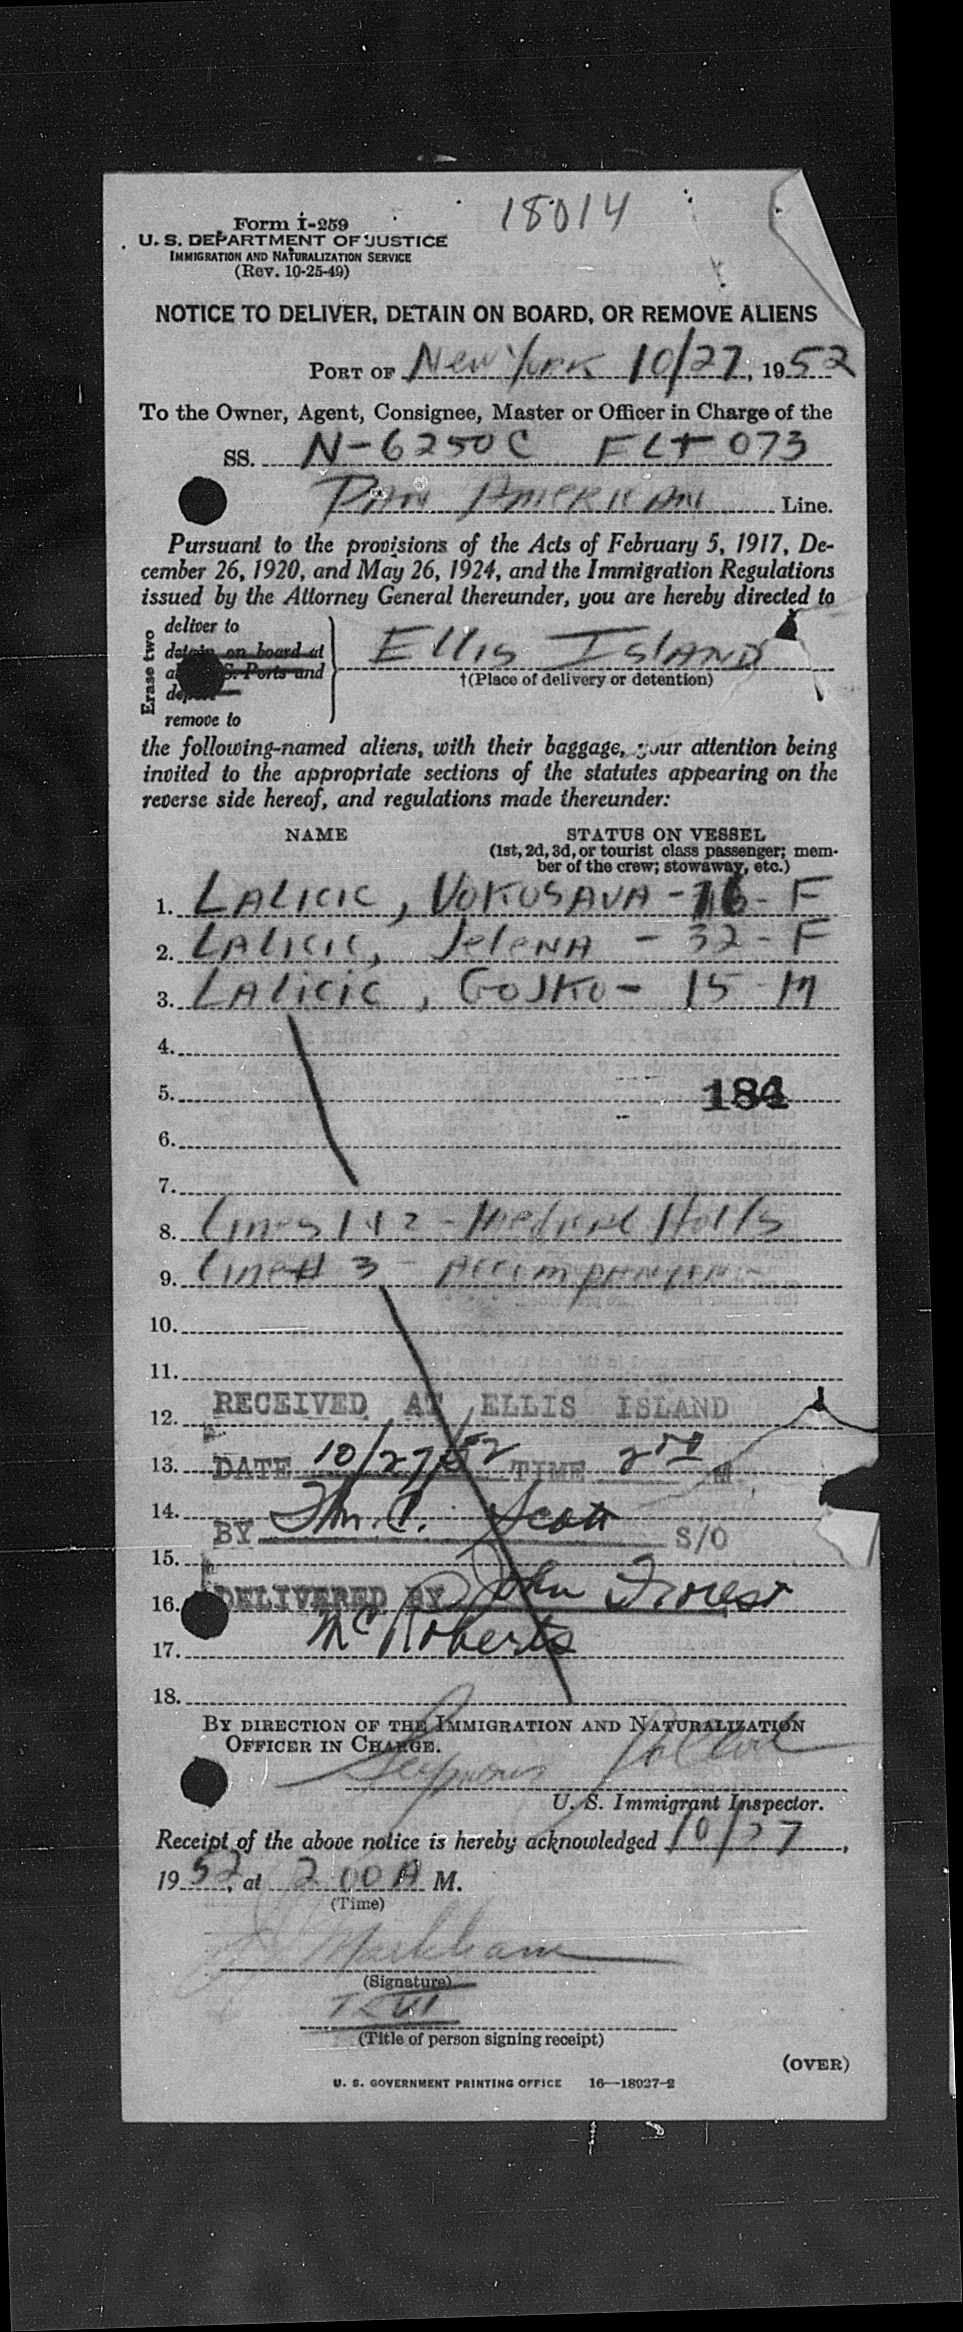 18014
Form I-259
U. S. DEPARTMENT OF JUSTICE
IMMIGRATION AND NATURALIZATION SERVICE
(Rev. 10-25-49)
NOTICE TO DELIVER, DETAIN ON BOARD, OR REMOVE ALIENS
PORT OF New York 10/27, 1952
To the Owner, Agent, Consignee, Master or Officer in Charge of the
SS. N-6250C FLT 073
PAN AMERICAN Line.
Pursuant to the provisions of the Acts of February 5, 1917, De-
cember 26, 1920, and May 26, 1924, and the Immigration Regulations
issued by the Attorney General thereunder, you are hereby directed to
Erase two
deliver to
detain on board at
S. Ports and
remove to
Ellis Island
†(Place of delivery or detention)
the following-named aliens, with their baggage, your attention being
invited to the appropriate sections of the statutes appearing on the
reverse side hereof, and regulations made thereunder:
NAME STATUS ON VESSEL
(1st, 2d, 3d, or tourist class passenger; mem-
ber of the crew; stowaway, etc.)
1. LALICIC, VUKOSAVA - 16 - F
2. LALICIC, JeleNA - 32 - F
3. LALICIC, GOJKO - 15 - M
4.
5. 184
6.
7.
8. Lines 1 & 2 - Medical Holds
9. Line # 3 - Accompanying
10.
11.
12. RECEIVED AT ELLIS ISLAND
13. DATE 10/27/52 TIME 2 M
14.
BY Thr. C. Scott S/O
15.
16. DELIVERED BY John Forest
17. McRoberts
18.
BY DIRECTION OF THE IMMIGRATION AND NATURALIZATION
OFFICER IN CHARGE.
Seymour
U. S. Immigrant Inspector.
Receipt of the above notice is hereby acknowledged 10/27,
1952, at 2 00 A M.
(Time)
Markham
(Signature)
(Title of person signing receipt)
(OVER)
U. S. GOVERNMENT PRINTING OFFICE 16—18027-2